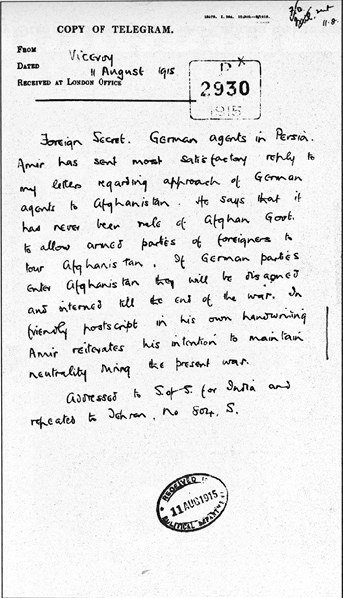 COPY OF TELEGRAM.
FROM Viceroy
DATED 11 August 1915
RECEIVED AT LONDON OFFICE
P
2930
1915
11.8.
Foreign Secret. German agents in Persia.
Amir has sent most satisfactory reply to
my letters regarding approach of German
agents to Afghanistan. He says that it
has never been rule of Afghan Govt.
to allow armed parties of foreigners to
tour Afghanistan. If German parties
enter Afghanistan they will be disarmed
and interned till the end of the war. In
friendly postscript in his own handwriting
Amir reiterates his intention to maintain
neutrality during the present war.
Addressed to S. of S. for India and
repeated to Tehran, No 804, S.
RECEIVED
11 AUG 1915
POLITICAL DEPARTMENT